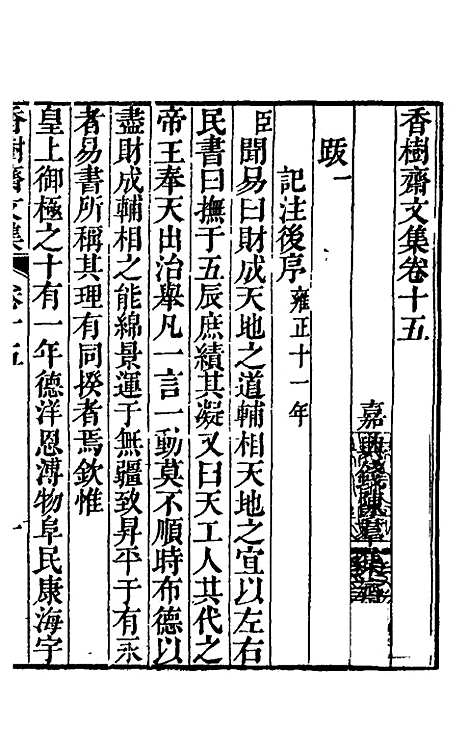 香樹齋文集卷十五
嘉興錢陳羣集齋
跋一
記注後序雍正十一年
臣聞易曰財成天地之道輔相天地之宜以左右
民書曰撫于五辰庶績其凝又曰天工人其代之
帝王奉天出治舉凡一言一動莫不順時布德以
盡財成輔相之能綿景運于無疆致昇平于有永
者易書所稱其理有同揆者焉欽惟
皇上御極之十有一年德洋恩溥物阜民康海宇
香樹齋文集 卷十五 一